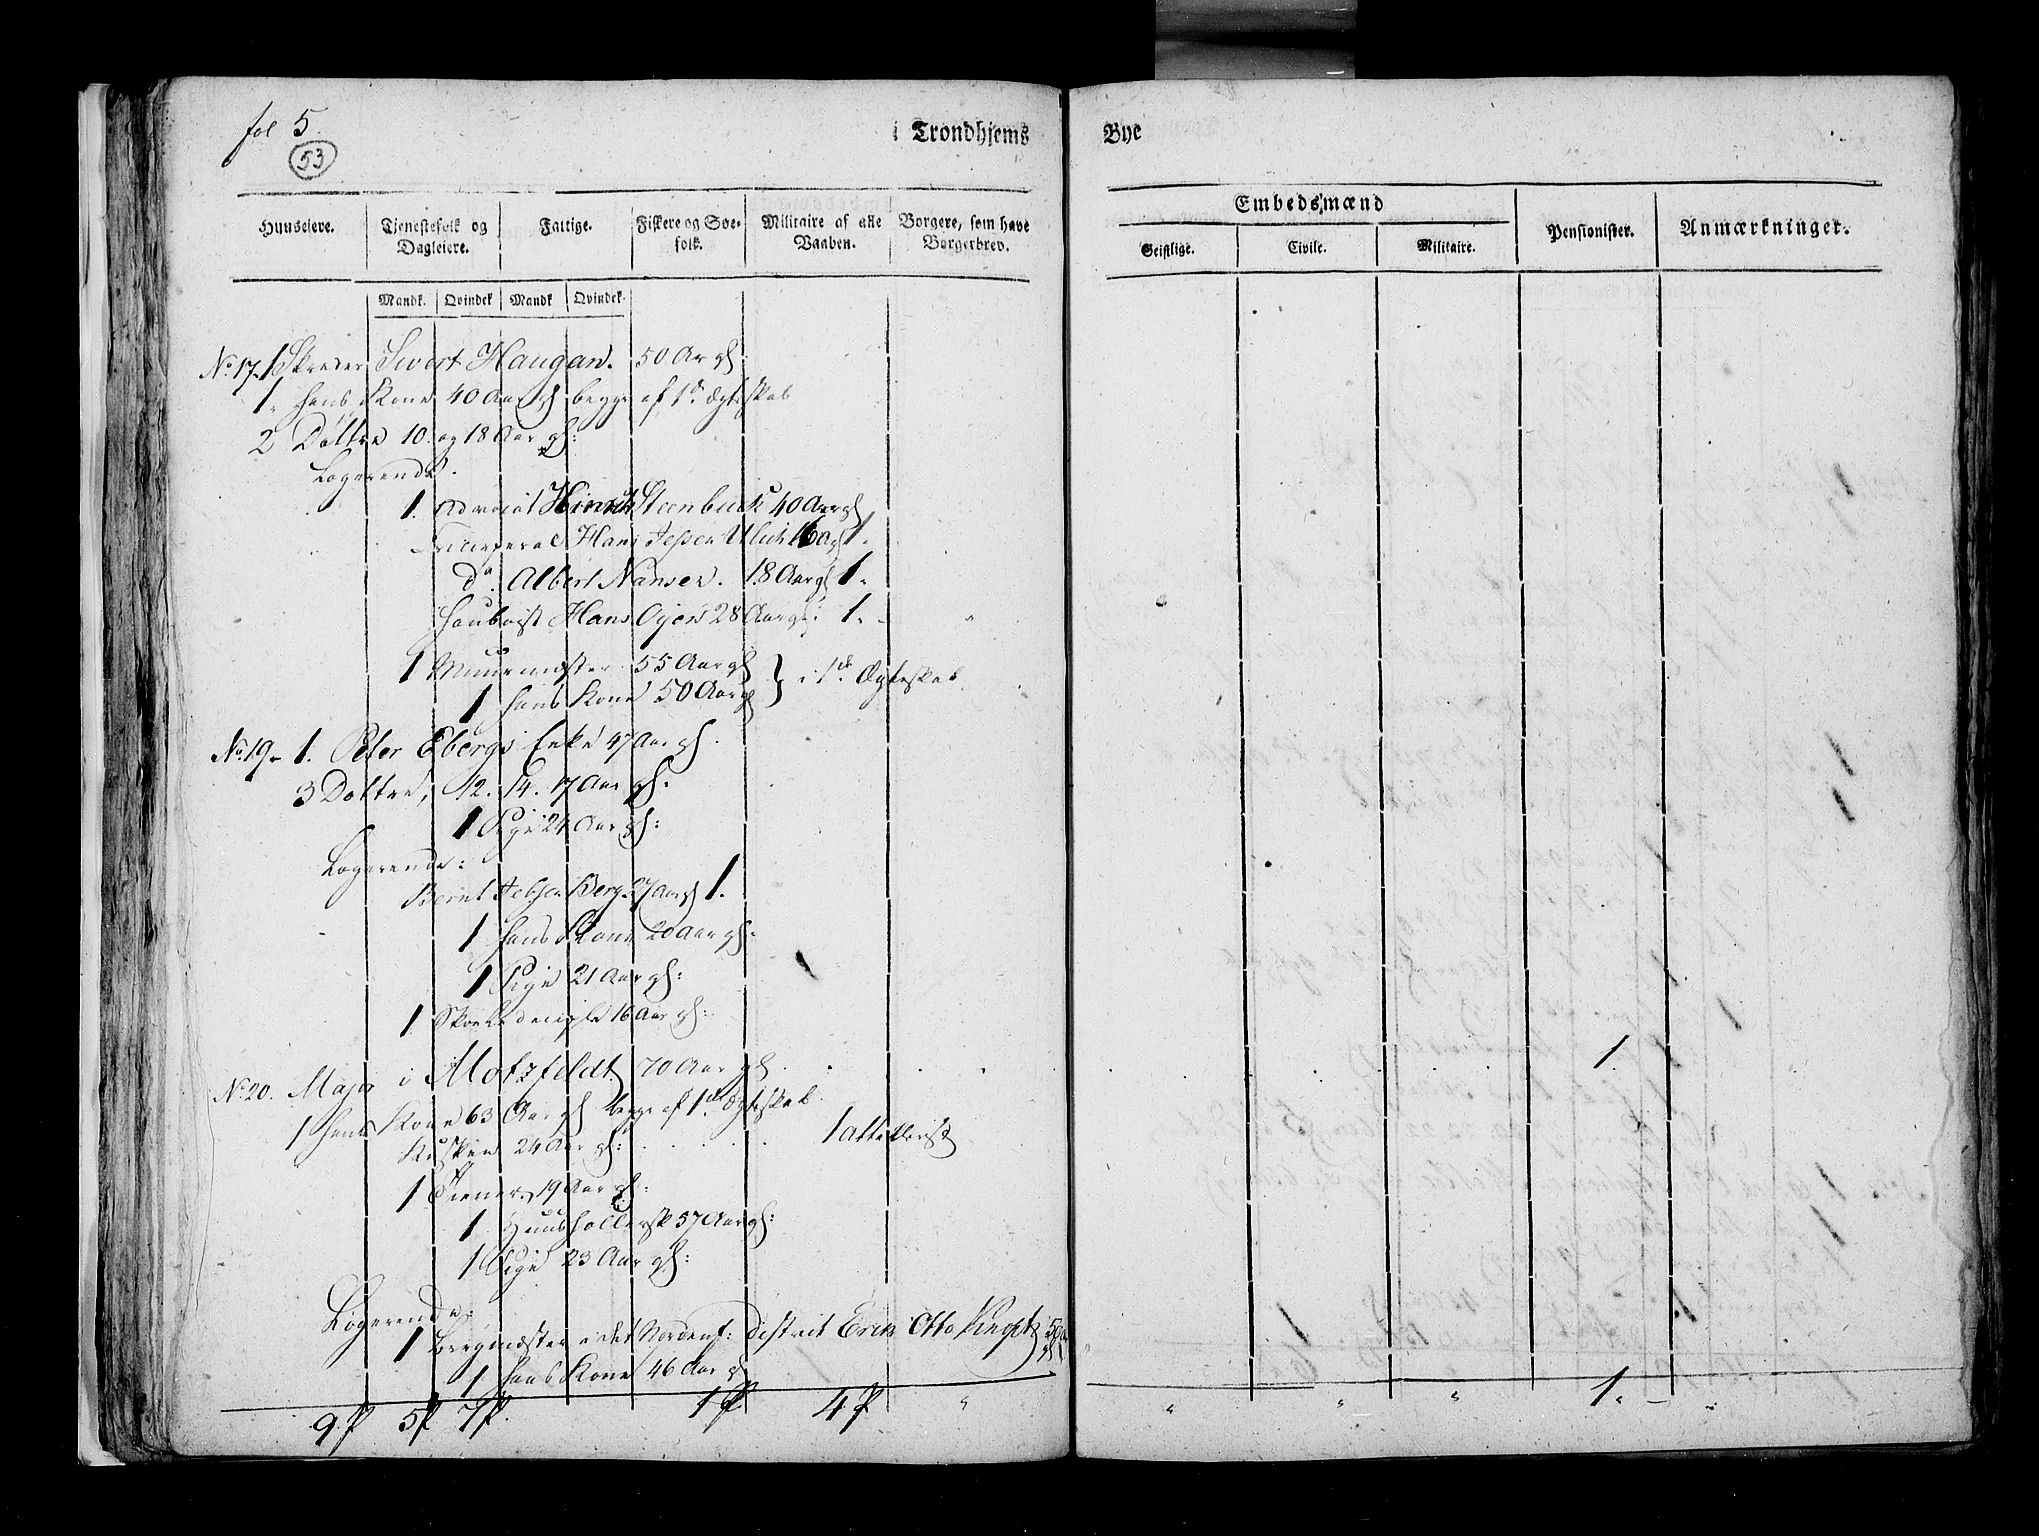 fol 5.
53
i Trondhjems Bye
Embedsmænd
Huuseiere. Tjenestefolk og Dagleiere. Fattige. Fiskere og Søe-folk. Militaire af alle Vaaben. Borgere, som have Borgerbrev. Geistlige. Civile. Militaire. Pensionister. Anmærkninger.
Mandk. Qvindek Mandk Qvindek.
No. 17. 1 Skræder Sivert Haugan. 50 Aar gl:
1. hans Kone 40 Aar gl begge af 1ste Ægteskab
2 Døttre 10. og 18 Aar gl:
Logerende.
1. Hinrich Steenbuck 40 Aar gl
Hans Jessen Ulich 16 1.
do. Albert Nansen. 18 Aar gl 1.
Hans 28 Aar gl: 1.
1 Muurmester 55 Aar gl } i 1ste Ægteskab
1 hans Kone 50 Aar gl
No. 19. 1. Peter Ebergs Enke 47 Aar gl.
3 Døttre, 12. 14. 17 Aar gl.
1 Pige 24 Aar gl:
Logerende:
Bernt Jebsen Berg 27 Aar gl 1.
1 hans Kone 20 Aar gl.
1 Pige 21 Aar gl:
1. 16 Aar gl:
No. 20. Major v Motzfeldt 70 Aar gl. 1.
1 hans Kone 63 Aar gl begge af 1ste Ægteskab
Kusken 24 Aar gl: 1 Attellerist
1 Tiener 19 Aar gl:
1. Huusholdersk 57 Aar gl:
1 Pige 23 Aar gl:
Logerende:
1 Bergmester i det Nordenf: District Erich Otto Knoph
1 hans Kone 46 Aar gl
9. 5 7. 1 4 " " " " 1. "